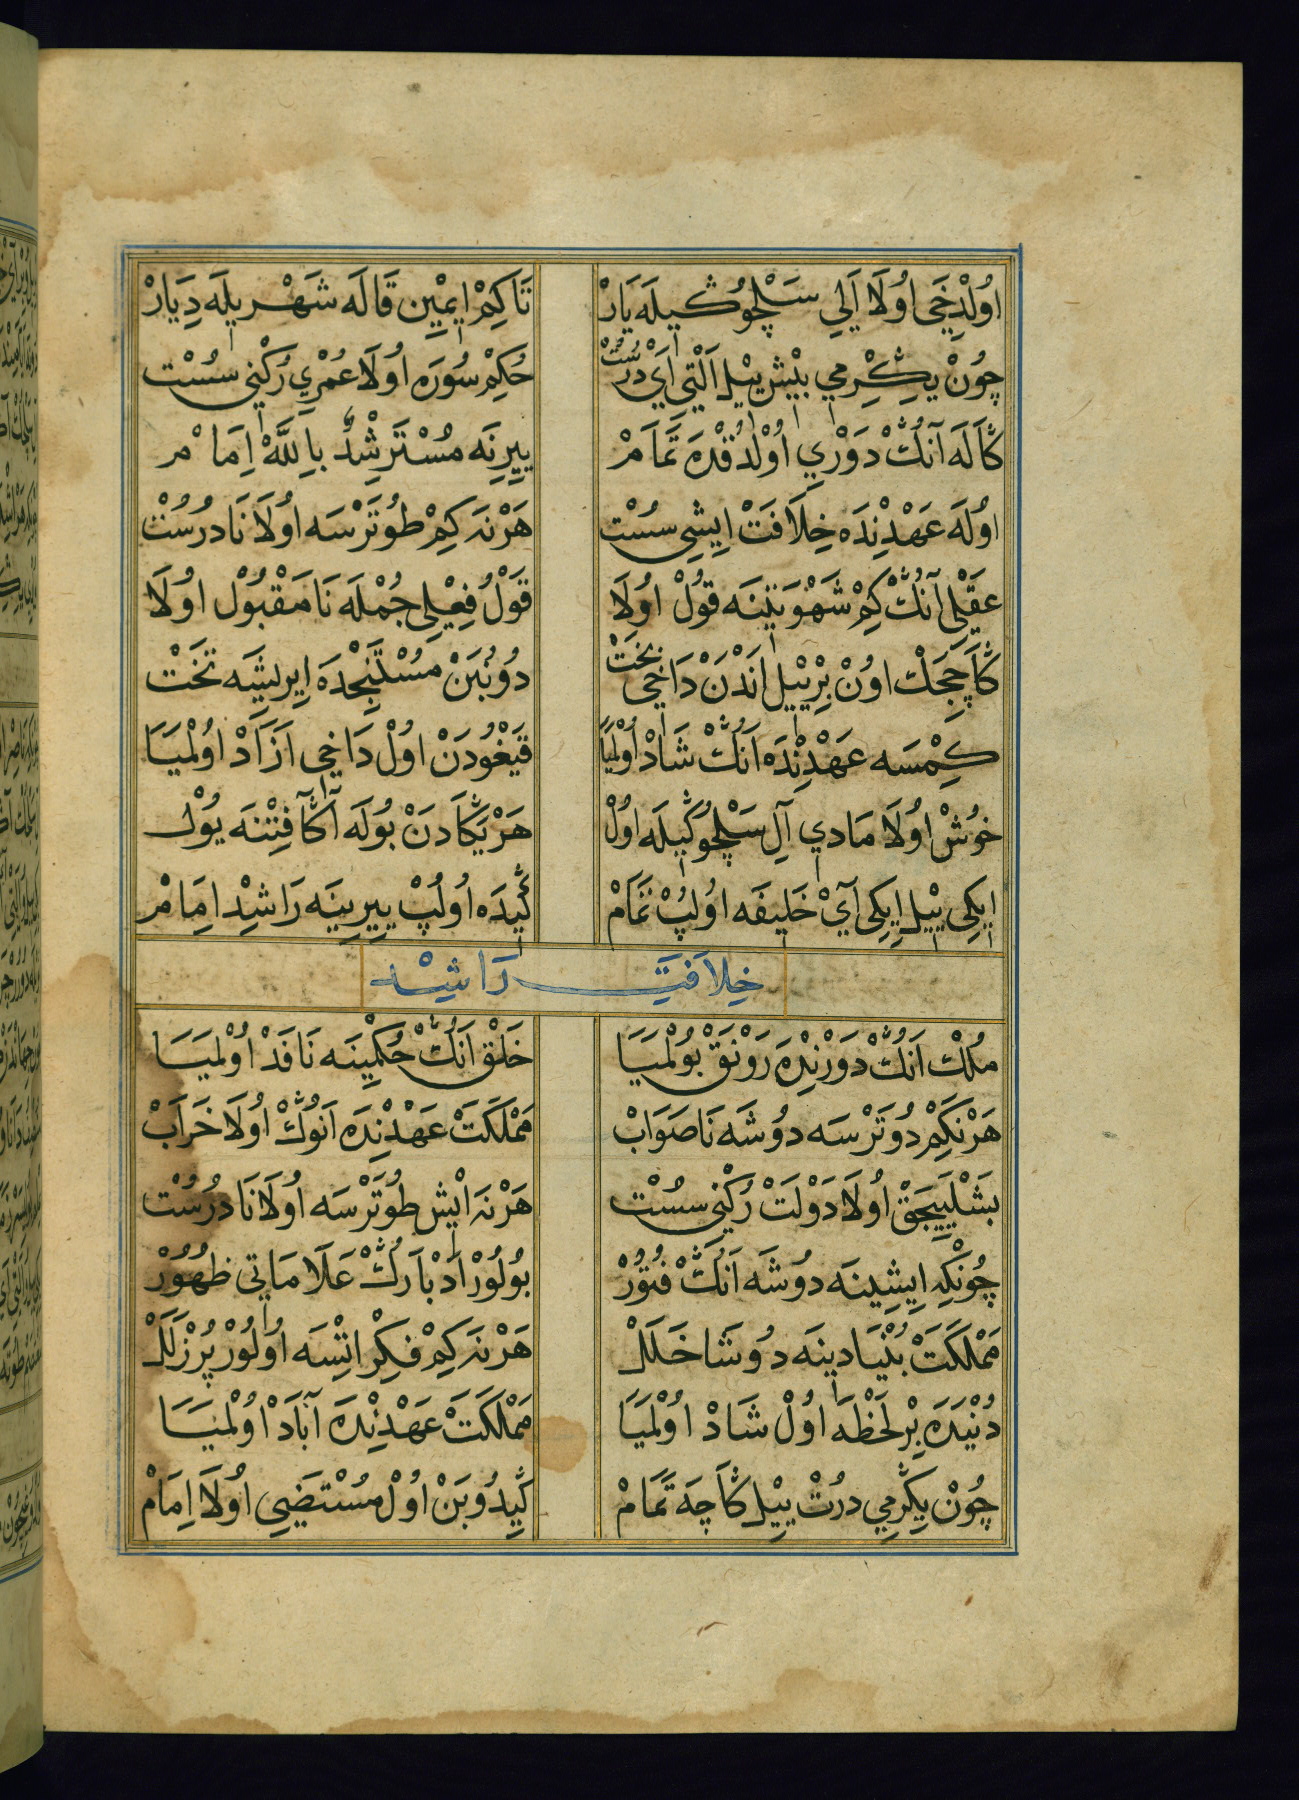 اُولْدَخَى اُولَا اَلِ سَلْچُوݣيلَه يَارْ تَاكِمْ اِيمْيِن قَالَه شَهْر يلَه دِيَارْ
چُونْ يِكِرْمي بيْش يِيْل اَلْتِي اَيْ دُرُسْتْ حُكِمْ سُورَه اُولَا عُمْرِي رُكْنِي سُسْت
كَالَه اَنُكْ دَوْرِي اُولْدُقْدَه تَمَامْ يِيرِنَه مُسْتَرشِدْ بِاللَّه اِمَامْ
اُولَه عَهْدِنْدَه خِلَافَتْ اِيشِي سُسْت هَرْنَه كِمْ طُوتَرْسَه اُولَا نَادُرُسْت
عَقْلِي اَنُكْ كِمْ شَهْوَتِينَه قُولْ اُولَا قَوْلُ فِعْلِي جُمْلَه نَامَقْبُولْ اُولَا
كَاچِجَكْ اُونْ بِرْ يِيل اَنْدَنْ دَاخِي بَخَتْ دُوبُبَنْ مُسْتَنْجِدَه اِيرِيشَه تَخَتْ
كِمْسَه عَهْدِنْدَه اَنُكْ شَادْ اُولْمَيَا قَيْغُودَنْ اُولْ دَاخِي اَزَادْ اُولْمَيَا
خُوشْ اُولَا مَادِي آلِ سَلْچُوكِيلَه اُولْ هَرْ يَكَادَنْ بُولَه آكَا فِتْنَه يُولْ
اِيكِي يِيل اِيكِي آيْ خَلِيفَه اُولُپْ تَمَامْ كِيدَه اُولُپْ يِيرِينَه رَاشِدْ اِمَامْ
خِلَافَتِ رَاشِدْ
مُلْكْ اَنُكْ دَوْرَنْدَه رَوْنَقْ بُولْمَيَا خَلْقْ اَنُكْ حُكْمِينَه نَافَذْ اُولْمَيَا
هَرْنَكِمْ دُوتَرْسَه دُوشَه نَاصَوَابْ مَمْلَكَتْ عَهْدِنْدَه اَنُوكْ اُولَا خَرَابْ
بَشْلَيِيجَقْ اُولَا دَوْلَتْ رُكْنِي سُسْت هَرْنَه اِيْش طُوتَرْسَه اُولَا نَادُرُسْت
چُونْكِه اِيشِينَه دُوشَه اَنُكْ فُتُورْ بُولُورْ اَدْبَارُكْ عَلَامَاتِي ظُهُورْ
مَمْلَكَتْ بُنْيَادِينَه دُوشَا خَلَلْ هَرْنَه كِمْ فِكِرْ اِتْسَه اُولُورْ پُرْ زَلَلْ
دُنْيَدَه بِرْ لَحْظَه اُولْ شَادْ اُولْمَيَا مَمْلَكَتْ عَهْدِنْدَه آبَادْ اُولْمَيَا
چُونْ يِكِرْمِي دُرْتْ يِيْل كَاچَه تَمَامْ كِيدُوبَنْ اُولْ مُسْتَضِي اُولَا اِمَامْ